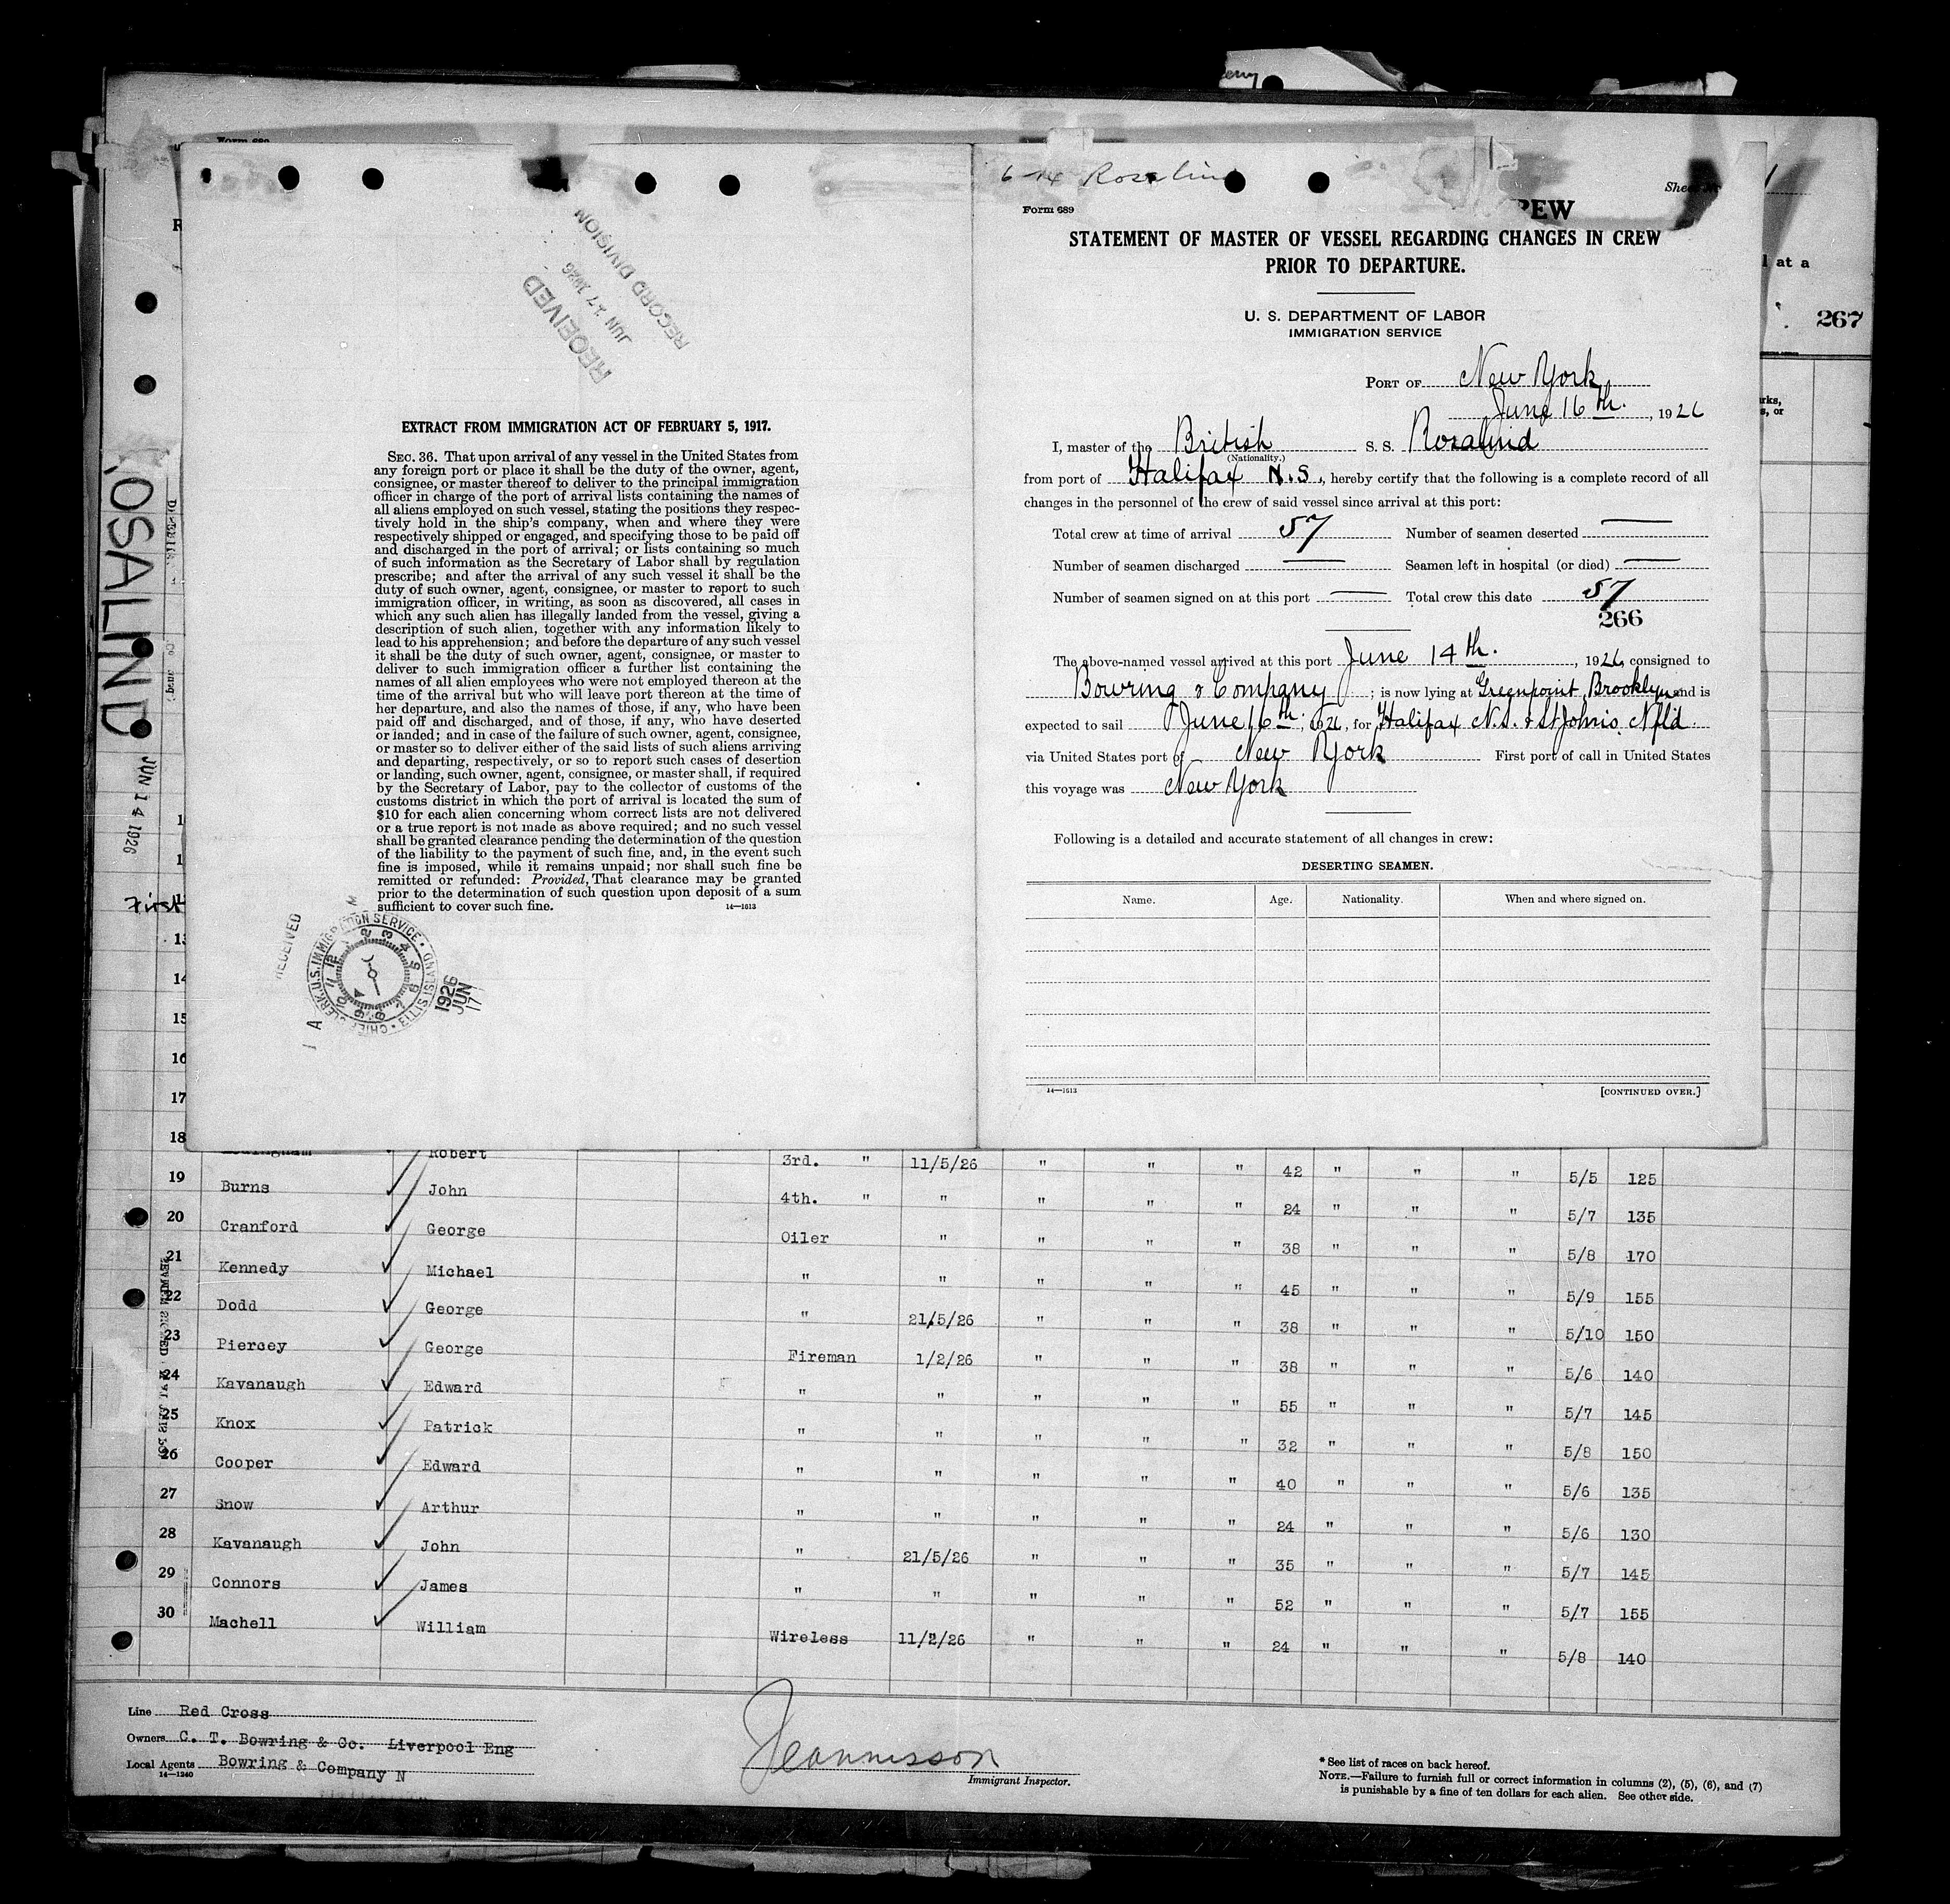 Form 689
RECORD DIVISION
JUN 17 1926
RECEIVED
EXTRACT FROM IMMIGRATION ACT OF FEBRUARY 5, 1917.
SEC. 36. That upon arrival of any vessel in the United States from
any foreign port or place it shall be the duty of the owner, agent,
consignee, or master thereof to deliver to the principal immigration
officer in charge of the port of arrival lists containing the names of
all aliens employed on such vessel, stating the positions they respec-
tively hold in the ship's company, when and where they were
respectively shipped or engaged, and specifying those to be paid off
and discharged in the port of arrival; or lists containing so much
of such information as the Secretary of Labor shall by regulation
prescribe; and after the arrival of any such vessel it shall be the
duty of such owner, agent, consignee, or master to report to such
immigration officer, in writing, as soon as discovered, all cases in
which any such alien has illegally landed from the vessel, giving a
description of such alien, together with any information likely to
lead to his apprehension; and before the departure of any such vessel
it shall be the duty of such owner, agent, consignee, or master to
deliver to such immigration officer a further list containing the
names of all alien employees who were not employed thereon at the
time of the arrival but who will leave port thereon at the time of
her departure, and also the names of those, if any, who have been
paid off and discharged, and of those, if any, who have deserted
or landed; and in case of the failure of such owner, agent, consignee,
or master so to deliver either of the said lists of such aliens arriving
and departing, respectively, or so to report such cases of desertion
or landing, such owner, agent, consignee, or master shall, if required
by the Secretary of Labor, pay to the collector of customs of the
customs district in which the port of arrival is located the sum of
$10 for each alien concerning whom correct lists are not delivered
or a true report is not made as above required; and no such vessel
shall be granted clearance pending the determination of the question
of the liability to the payment of such fine, and, in the event such
fine is imposed, while it remains unpaid; nor shall such fine be
remitted or refunded: Provided, That clearance may be granted
prior to the determination of such question upon deposit of a sum
sufficient to cover such fine. 14—1613
RECEIVED
CHIEF CLERK, U.S. IMMIGRATION SERVICE • ELLIS ISLAND
1926 JUN 17
OSALIND
JUN 14 1926
First
6-14 Rosalind
Form 689
REW
STATEMENT OF MASTER OF VESSEL REGARDING CHANGES IN CREW
PRIOR TO DEPARTURE.
U. S. DEPARTMENT OF LABOR
IMMIGRATION SERVICE
PORT OF New York
June 16th. , 1926
I, master of the British S. S. Rosalind
(Nationality.)
from port of Halifax N.S., hereby certify that the following is a complete record of all
changes in the personnel of the crew of said vessel since arrival at this port:
Total crew at time of arrival 57 Number of seamen deserted —
Number of seamen discharged — Seamen left in hospital (or died) —
Number of seamen signed on at this port — Total crew this date 57
266
The above-named vessel arrived at this port June 14th. , 1926, consigned to
Bowring & Company ; is now lying at Greenpoint, Brooklyn and is
expected to sail June 16th, 1926, for Halifax N.S. & St Johns, Nfld.
via United States port of New York First port of call in United States
this voyage was New York
Following is a detailed and accurate statement of all changes in crew:
DESERTING SEAMEN.
Name. Age. Nationality. When and where signed on.
14—1613 [CONTINUED OVER.]
l at a
267
13
14
15
16
17
18 Robert 3rd. " 11/5/26 " " " 42 " " " 5/5 125
19 Burns John 4th. " " " " " 24 " " " 5/7 135
20 Cranford George Oiler " " " " 38 " " " 5/8 170
21 Kennedy Michael " " " " " 45 " " " 5/9 155
22 Dodd George " 21/5/26 " " " 38 " " " 5/10 150
23 Piercey George Fireman 1/2/26 " " " 38 " " " 5/6 140
24 Kavanaugh Edward " " " " " 55 " " " 5/7 145
25 Knox Patrick " " " " " 32 " " " 5/8 150
26 Cooper Edward " " " " " 40 " " " 5/6 135
27 Snow Arthur " " " " " 24 " " " 5/6 130
28 Kavanaugh John " 21/5/26 " " " 35 " " " 5/7 145
29 Connors James " " " " " 52 " " " 5/7 155
30 Machell William Wireless 11/2/26 " " " 24 " " " 5/8 140
Line Red Cross
Owners C. T. Bowring & Co. Liverpool Eng
Local Agents Bowring & Company N
14—1240
Immigrant Inspector.
* See list of races on back hereof.
NOTE.—Failure to furnish full or correct information in columns (2), (5), (6), and (7)
is punishable by a fine of ten dollars for each alien. See other side.